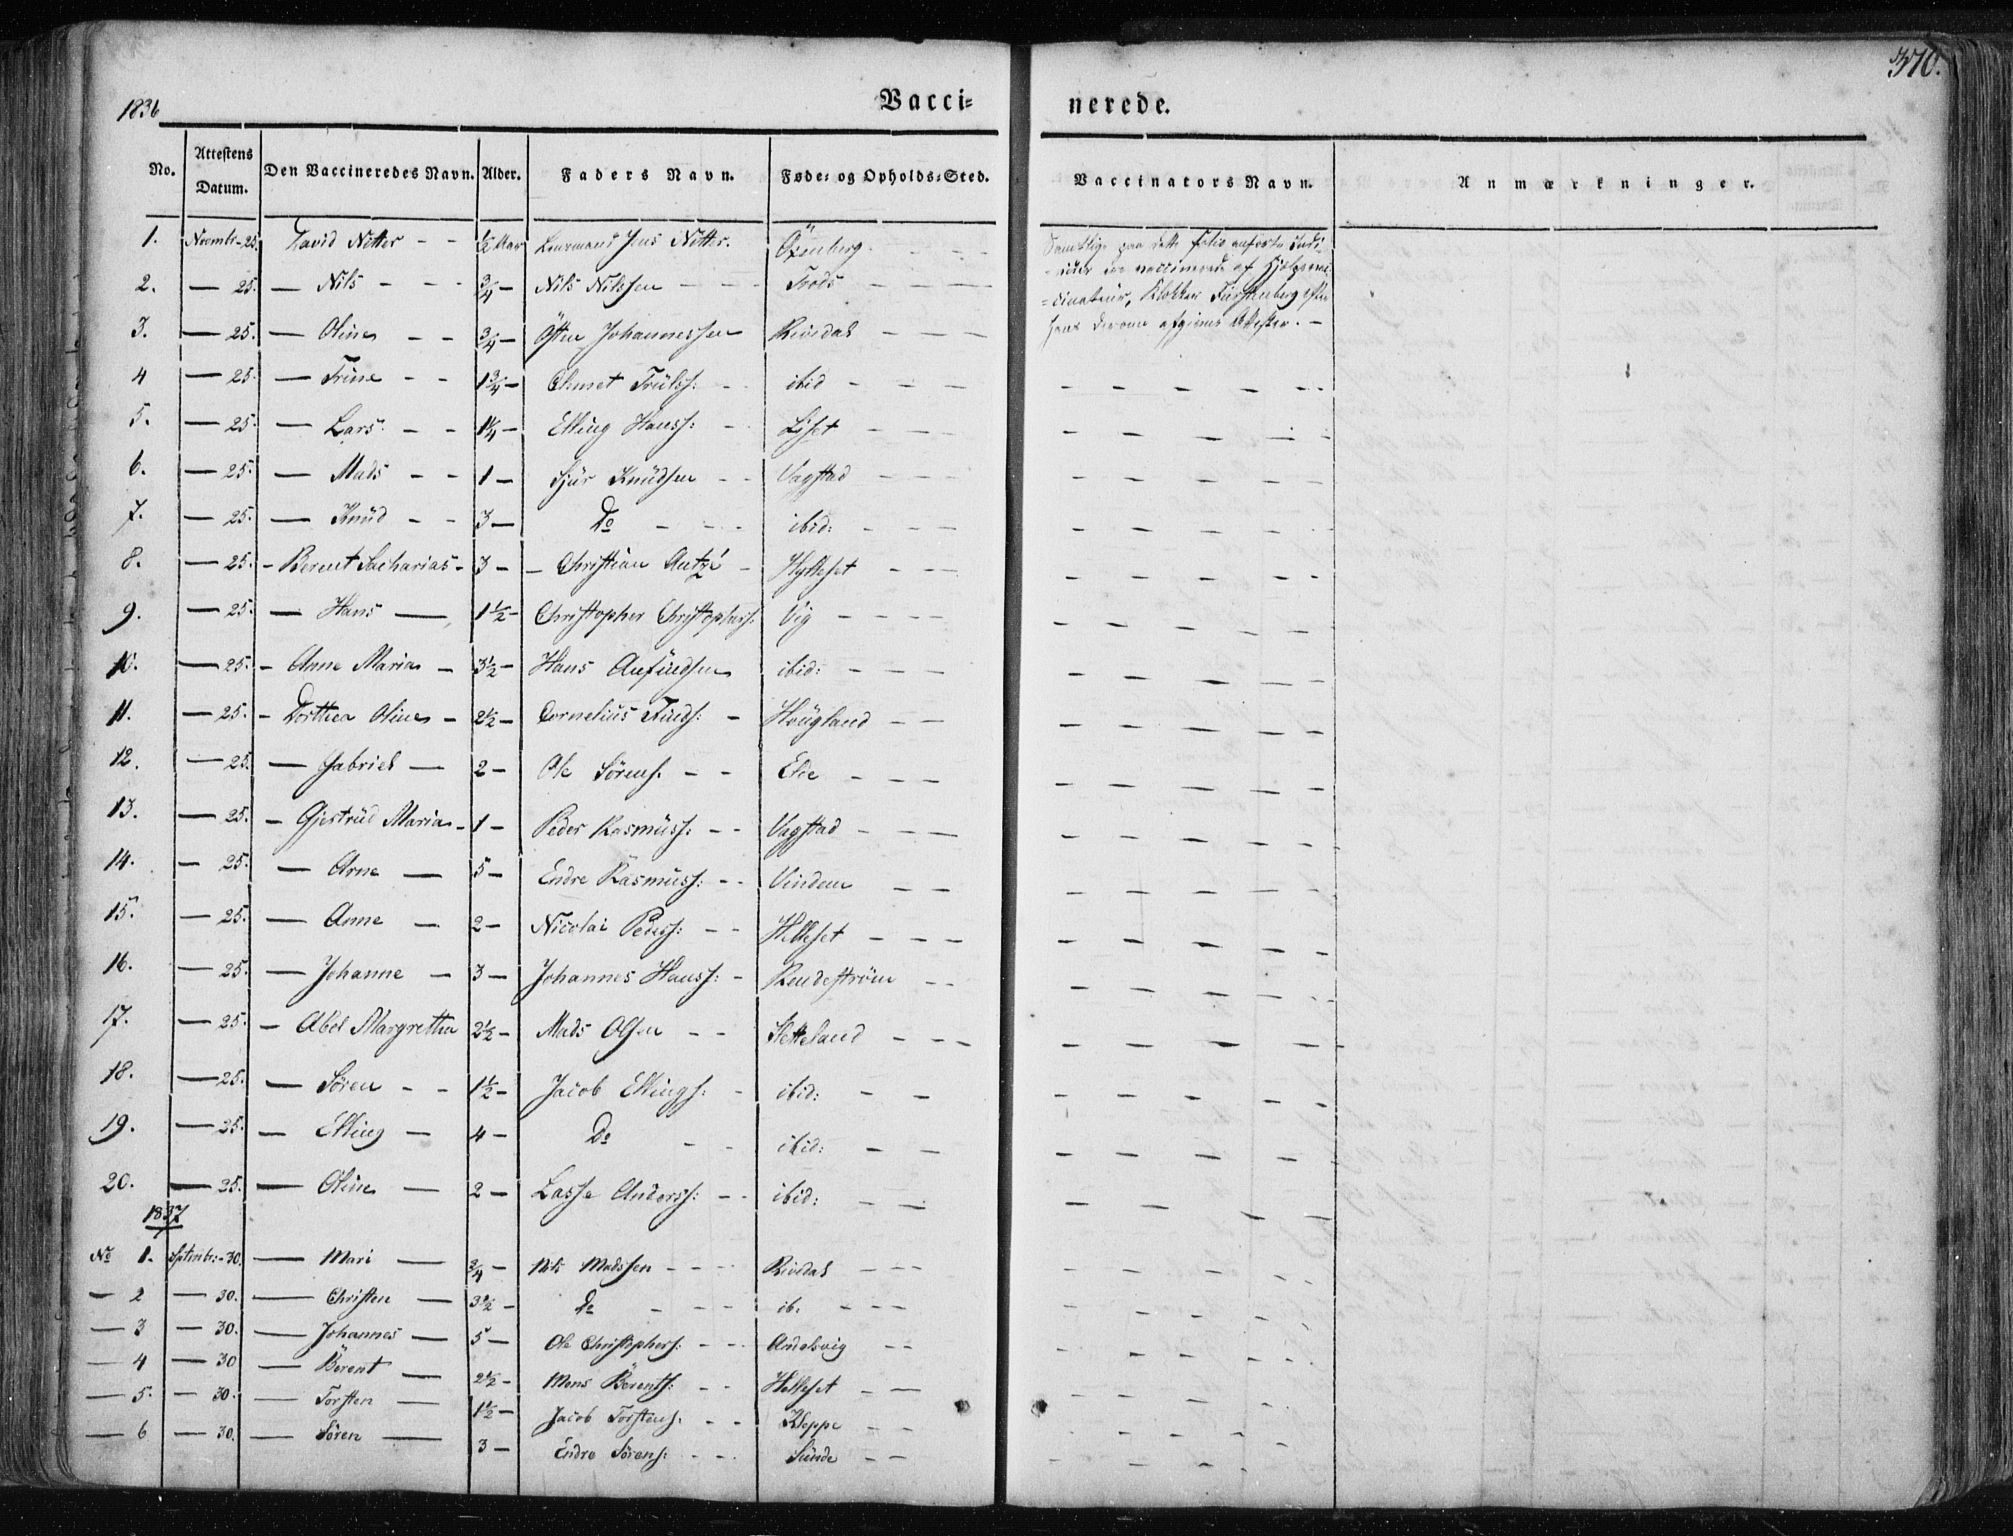 370.
1836 Vacci- nerede.
No. Attestens Datum. Den Vaccineredes Navn. Alder. Faders Navn. Føde- og Opholds-Sted. Vaccinators Navn. Anmærkninger.
1. Novembr-25. David Nitter - - ½ Aar Lensmand Jens Nitter. Öxenberg - - -
Samtlige paa dette folio anførte Indi-
vider ere vaccinerede af Hjelpevac-
cinateur, Klokker Fürstenberg efter
hans derom afgivne Attester. -
2. — 25. — Nils - - - ¾ — Nils Nilssen - - - Trods - - - -
3. — 25. — Oline - - ¾ — Østen Johannessen Rivedal - - -
4 — 25. — Trine - - 1¾ — Truls: - - ibid - - -
5. — 25. — Lars - - 1¼ — Elling Hanss: - Liset - - -
6. — 25. — Mads - - 1 — Sjur Knüdsen - - Vagstad - - -
7. — 25. — Knüd - - 3 — Do - - - ibid: - - -
8. — 25. - Berent Zacharias - 3 — - Christian - Hylleset - - -
9. — 25. — Hans — 1½ — Christopher Christophers: Vig - - - -
10. — 25. - Anne Maria - 3½ — Hans Anfindsen ibid: - - -
11. — 25. - Dorthea Oline - 2½ — Cornelius - Hougland - -
12. — 25. — Gabriel — 2 — Ole Sörens: - - Elie - - -
13. — 25. - Gjertrüd Maria - 1 — Peder Rasmüss: - - Vagstad - - -
14. — 25. — Arne — 5 — Endre Rasmüss: - - - -
15. — 25. — Anne — 2 — Nicolai Peders: - - Helleset - - -
16. — 25. — Johanne - 3 — Johannes Hanss: - Rendeström - -
17. — 25. - Abel Margretha 2½ — Mads Olsen - - Helleland - - -
18. — 25. — Sören - - 1½ — Jacob Ellings: - ibid: - -
19. — 25. — Elling - 4 — Do - - ibid: - -
20. — 25. — Oline — 2 — Lasse Anderss: - - ibid: - -
1837
No 1. Septmbr:-30. — Mari — ¾ — Nils Madssen - - - Rivedal - - -
— 2 — 30. — Christen — 3½ — Do - - - ib: - - -
— 3 — 30. — Johannes — 5 — Ole Christophers: - - - Andalsvig - -
— 4 — 30 — Bërent — 2½ — Mons Bërents: - - Helleset - -
— 5. — 30. — Torsten — 1½ — Jacob Torstens: - - Kleppe - -
— 6 — 30. — Sören — 3 — Endre Sörens: - - - Sünde - -